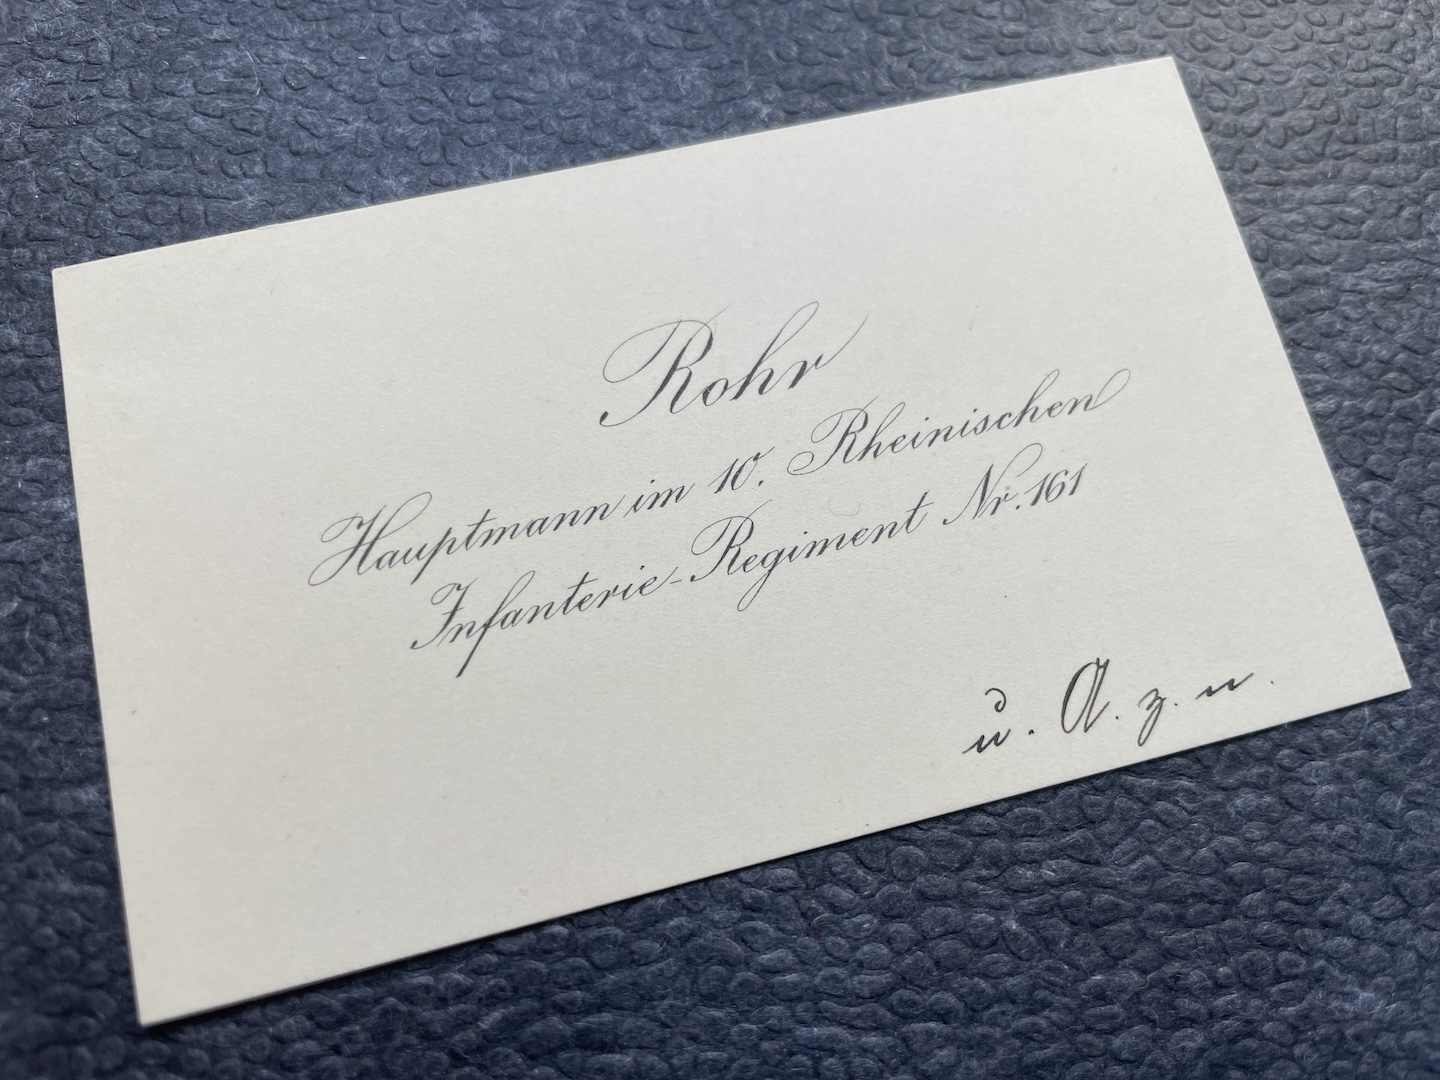 Rohr
Hauptmann im 10. Rheinischen
Infanterie-Regiment Nr. 161
u. A. z. n.